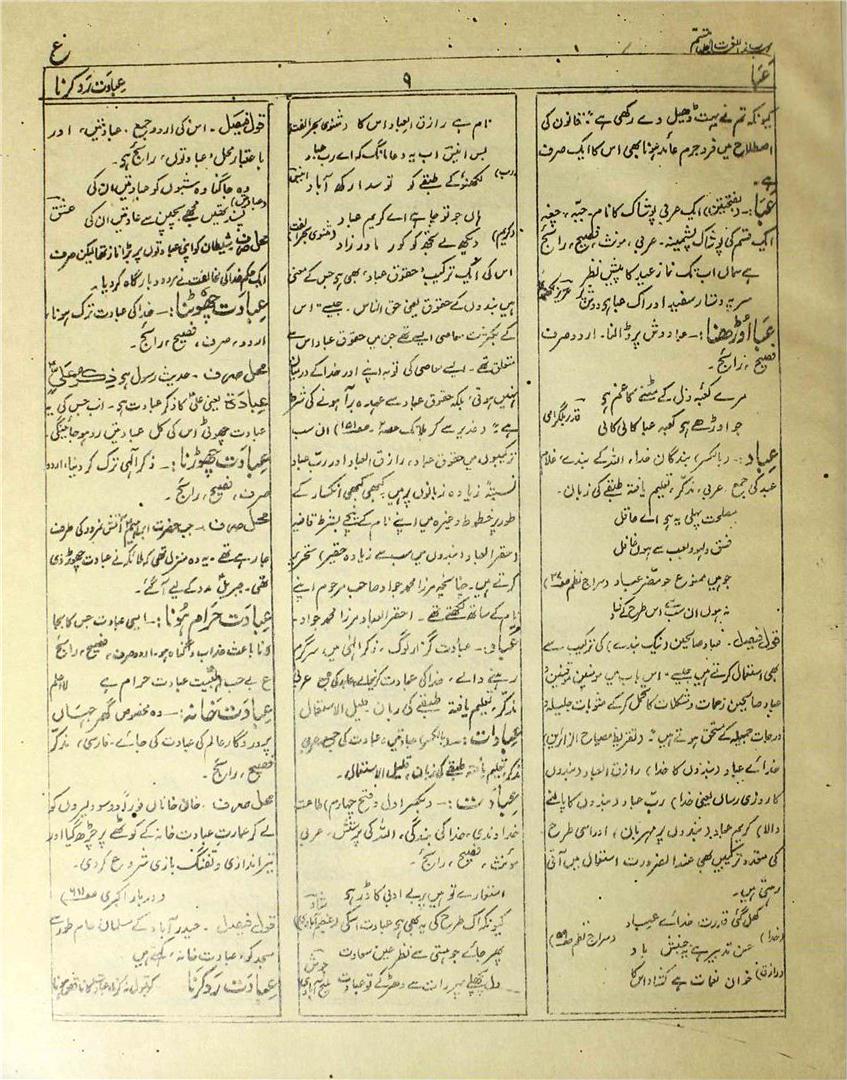 ع
عبا
۹
عبادت رد کرنا
کیونکہ تم نے بہت ڈھیل دے رکھی ہے۔ قانون کی
اصطلاح میں فرد جرم عائد ہونا بھی اس کا ایک صرف
ہے۔
عبا :۔ (بفتحین) ایک عربی پوشاک کا نام۔ جبہ، چغہ
ایک قسم کی پوشاک پشمینہ۔ عربی، مونث، فصیح، رائج
ہے سماں اب تک نماز عید کا پیش نظر
سر پہ دستار سفید اور اک عبا
عبا اوڑھنا :۔ عبا دوش پر ڈالنا۔ اردو صرف
فصیح، رائج۔
مرے کعبۂ دل کے مٹنے کا غم ہے
جو اوڑھے ہے کعبہ عبا کالی کالی
عباد :۔ (بالکسر) بندگان خدا، اللہ کے بندے، غلام
عبد کی جمع۔ عربی، مذکر، تعلیم یافتہ طبقے کی زبان۔
مصلحت پہلی یہ ہے اے عاقل
فسق و لہو و لعب سے ہوں غافل
جو ہیں ممنوع و مضر عباد
نہ ہوں ان سب سے اس طرح کے شاد
قول فیصل۔ عباد صالحین (نیک بندے) کی ترکیب سے
بھی استعمال کرتے ہیں جیسے "اس باب میں مومنین
عباد صالحین زحمات و مشکلات کا تحمل کر کے مثوبات جلیلہ و
درجات جمیلہ کے مستحق ہوتے ہیں"۔
خدائے عباد (بندوں کا خدا) رازق العباد (بندوں
کا روزی رساں یعنی خدا) رب عباد (بندوں کا پالنے
والا) کریم عباد (بندوں پر مہربان) اور اسی طرح
کی متعدد ترکیبیں بھی عند الضرورت استعمال میں آتی
رہتی ہیں۔
(خدا) کھل گئی قدرت خدائے عباد
حسن تدبیر سے
(رازق) خوان نعمات ہے کشادہ اس کا
نام ہے رازق العباد اس کا
(رب) بس انیس اب یہ دعا مانگ کہ اے رب عباد
لکھنؤ کے طبقے کو تو سدا رکھ آباد انیس
(کریم) ہاں جو تو چاہے اے کریم عباد
دیکھ لے تجھ کو کور مادر زاد
اس کی ایک ترکیب "حقوق عباد" بھی ہے جس کے معنی
ہیں بندوں کے حقوق یعنی حق الناس۔ جیسے "اس
کے بکثرت معاصی ایسے تھے جن میں حقوق عباد اس سے
متعلق تھے۔ ایسے معاصی کی توبہ اپنے اور خدا کے درمیان
نہیں ہوتی بلکہ حقوق عباد سے عہدہ برآ ہونے کی شرط
ہے"
ترکیبوں میں حقوق عباد، رازق العباد اور رب عباد
نسبتہً زیادہ زبانوں پر ہیں کبھی کبھی انکسار کے
طور پر خطوط وغیرہ میں اپنے نام کے نیچے بشرط قافیہ
احقر العباد (بندوں میں سب سے زیادہ حقیر) تحریر
کرتے ہیں۔ چنانچہ مرزا محمد جواد صاحب مرحوم اپنے
نام کے ساتھ لکھتے تھے۔ احقر العباد مرزا محمد جواد۔
عباد :۔ عبادت گزار لوگ، ذکر الٰہی میں سرگرم
رہنے والے، خدا کی عبادت کرنے والے، عابد کی جمع۔ عربی
مذکر، تعلیم یافتہ طبقے کی زبان قلیل الاستعمال
عبادات :۔ (بالکسر) عبادتیں، عبادت کی جمع، عربی
مذکر، تعلیم یافتہ طبقے کی زبان، قلیل الاستعمال۔
عبادت :۔ (بکسر اول و فتح چہارم) طاعت
خداوندی، خدا کی بندگی، اللہ کی پرستش، عربی
مونث، فصیح، رائج۔
استوار سے تو ہیں پر بے ادبی کا ڈر ہے
کیونکہ اک طرح کی یہ بھی ہے عبادت اسکی
پھر جائے جو مستی سے نظر عین سعادت
دل پچھلے پہر رات سے دھڑکے تو عبادت
قول فیصل۔ اس کی اردو جمع "عبادتیں" اور
باعتبار محل "عبادتوں" رائج ہے۔
وہ جاگنا وہ شبوں کو عبادتیں ان کی
پسند تھیں مجھے بچپن سے عادتیں ان کی عشق
محل صرف۔ شیطان کو اپنی عبادتوں پر بڑا ناز تھا لیکن صرف
ایک حکم خدا کی مخالفت نے مردود بارگاہ کر دیا۔
عبادت چھوٹنا :۔ خدا کی عبادت ترک ہونا،
اردو، صرف، فصیح، رائج۔
محل صرف۔ حدیث رسول ہے ذکر علی
عبادۃ یعنی علی کا ذکر عبادت ہے۔ اب جس کی یہ
عبادت چھوٹی اس کی کل عبادتیں رد ہو جائیں گی۔
عبادت چھوڑنا :۔ ذکر الٰہی ترک کر دینا، اردو
صرف، فصیح، رائج۔
محل صرف۔ جب حضرت ابراہیم آتش نمرود کی طرف
جا رہے تھے۔ یہ وہ منزل تھی کہ ملائکہ نے عبادت چھوڑ دی
تھی۔ جبریل مدد کے لیے آگئے۔
عبادت حرام ہونا :۔ ایسی عبادت جس کا بجا
لانا باعث عذاب و گناہ ہو۔ اردو صرف، فصیح، رائج
ع بے حب اہلبیت عبادت حرام ہے لا اعلم
عبادت خانہ :۔ وہ مخصوص گھر جہاں
پروردگار عالم کی عبادت کی جائے۔ فارسی، مذکر
فصیح، رائج۔
محل صرف۔ خان خاناں فوراً دو سو دلیروں کو
لے کر عمارت عبادت خانہ کے کوٹھے پر چڑھ گیا اور
تیر اندازی و تفنگ بازی شروع کر دی۔
(دربار اکبری)
قول فیصل۔ حیدر آباد کے مسلمان عام طور سے
مسجد کو "عبادت خانہ" کہتے ہیں
عبادت رد کرنا